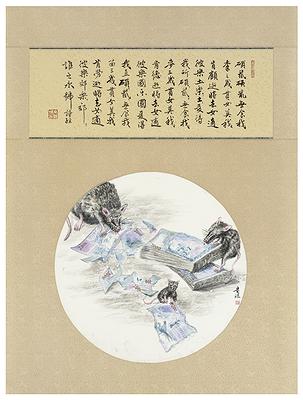 碩鼠碩鼠無食我
黍三歲貫女莫我
肯顧逝將去女適
彼樂土樂土爰得
我所碩鼠無食我
麥三歲貫女莫我
肯德逝將去女適
彼樂國樂國爰得
我直碩鼠無食我
苗三歲貫女莫我
肯勞逝將去女適
彼樂郊樂郊
誰之永號 詩經